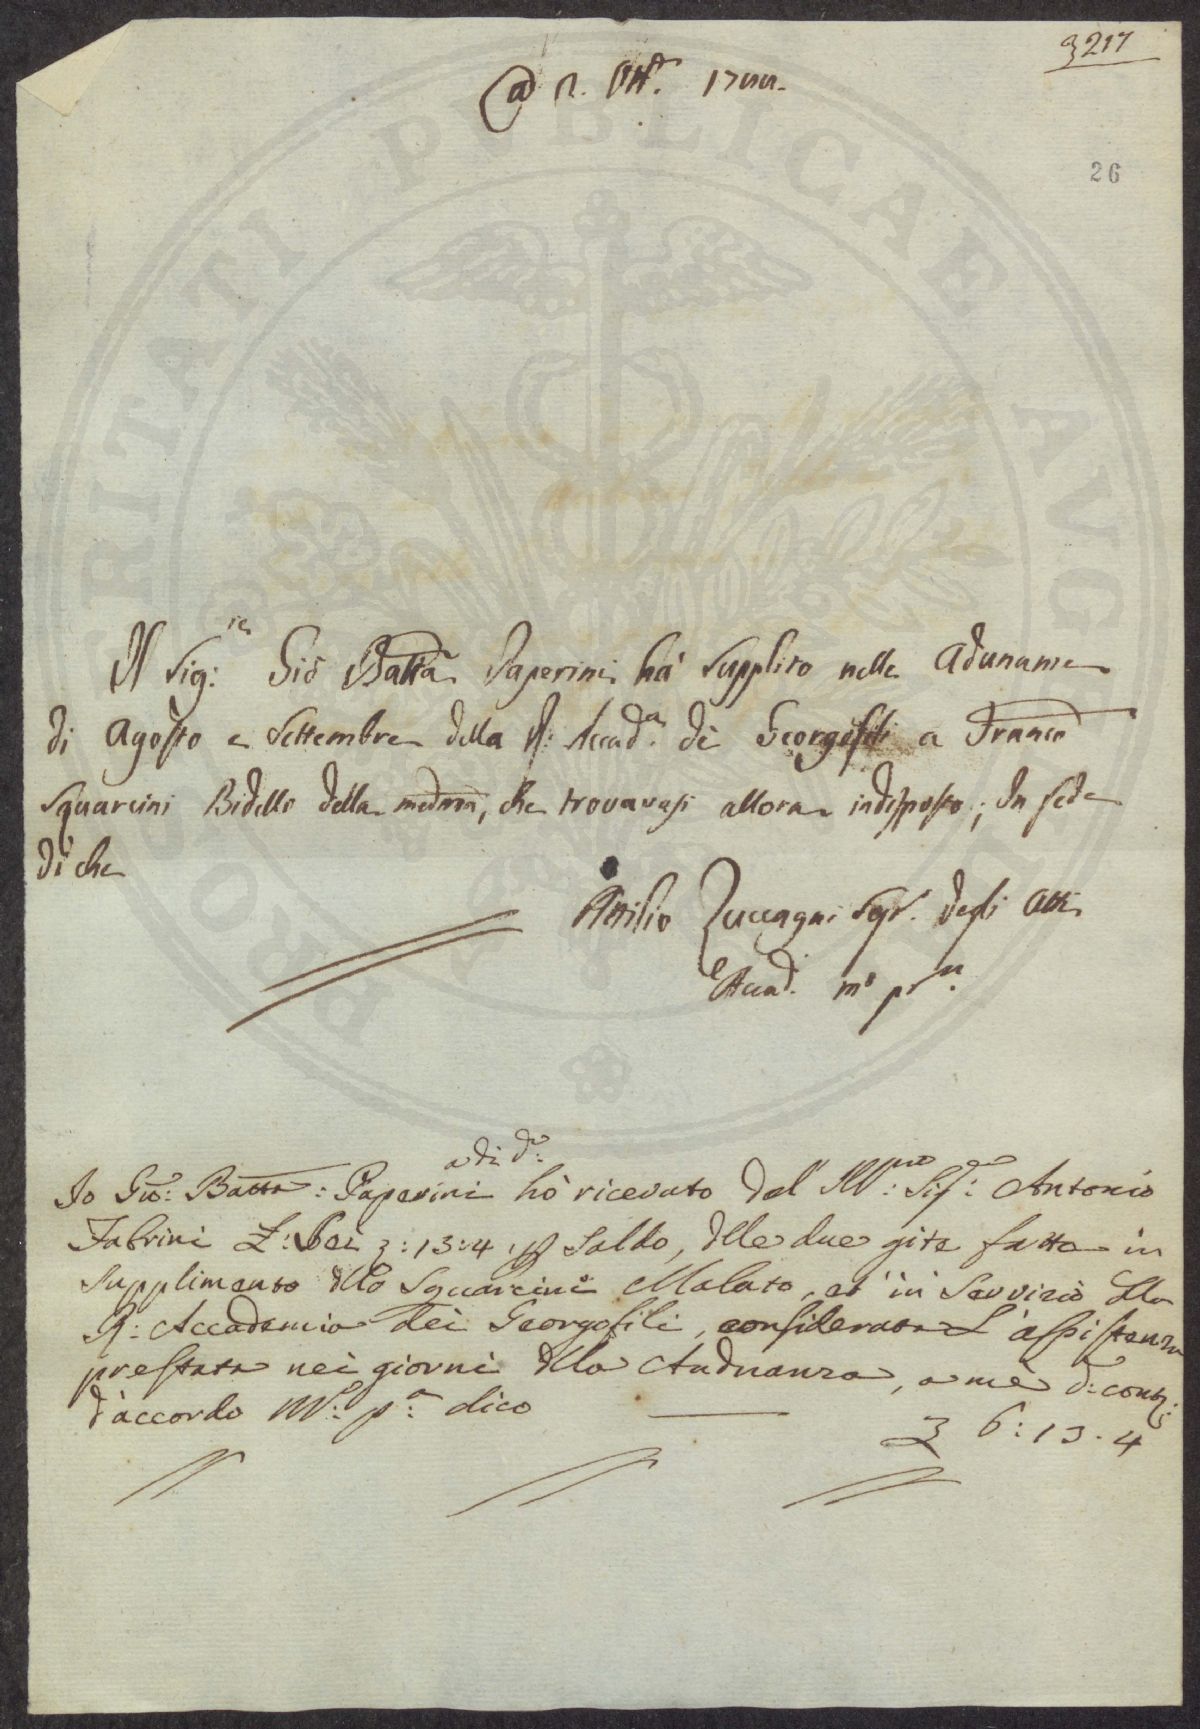 3217
26
Il Sig:re Gio Batta Paperini ha supplito nelle Adunanze
di Agosto e Settembre della R: Accad.a de Georgofili a Franco
Squarcini Bidello della medma, che trovavasi allora indisposto; In fede
di che
Attilio Zuccagni Segr. degli Atti
Accad. mo pr
a di do:
Io Gio: Batta: Paperini hò ricevuto dal Sig: Antonio
Fabrini 13:4 Saldo, dlle due gite fatte in
supplimento dllo Squarcini Malato, et in Servizio dlla
R: Accademia dei Georgofili, considerata L'assistenza
prestata nei giorni dlla Auduanza, a mè
d'accordo Mo: pa: dico
6:13.4